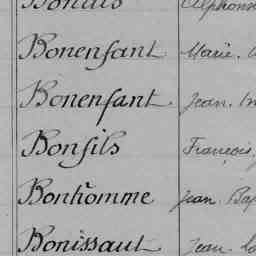 Bonenfant Marie.
Bonenfant Jean.
Bonfils François
Bonhomme Jean. Bap
Bonissaut Jean.